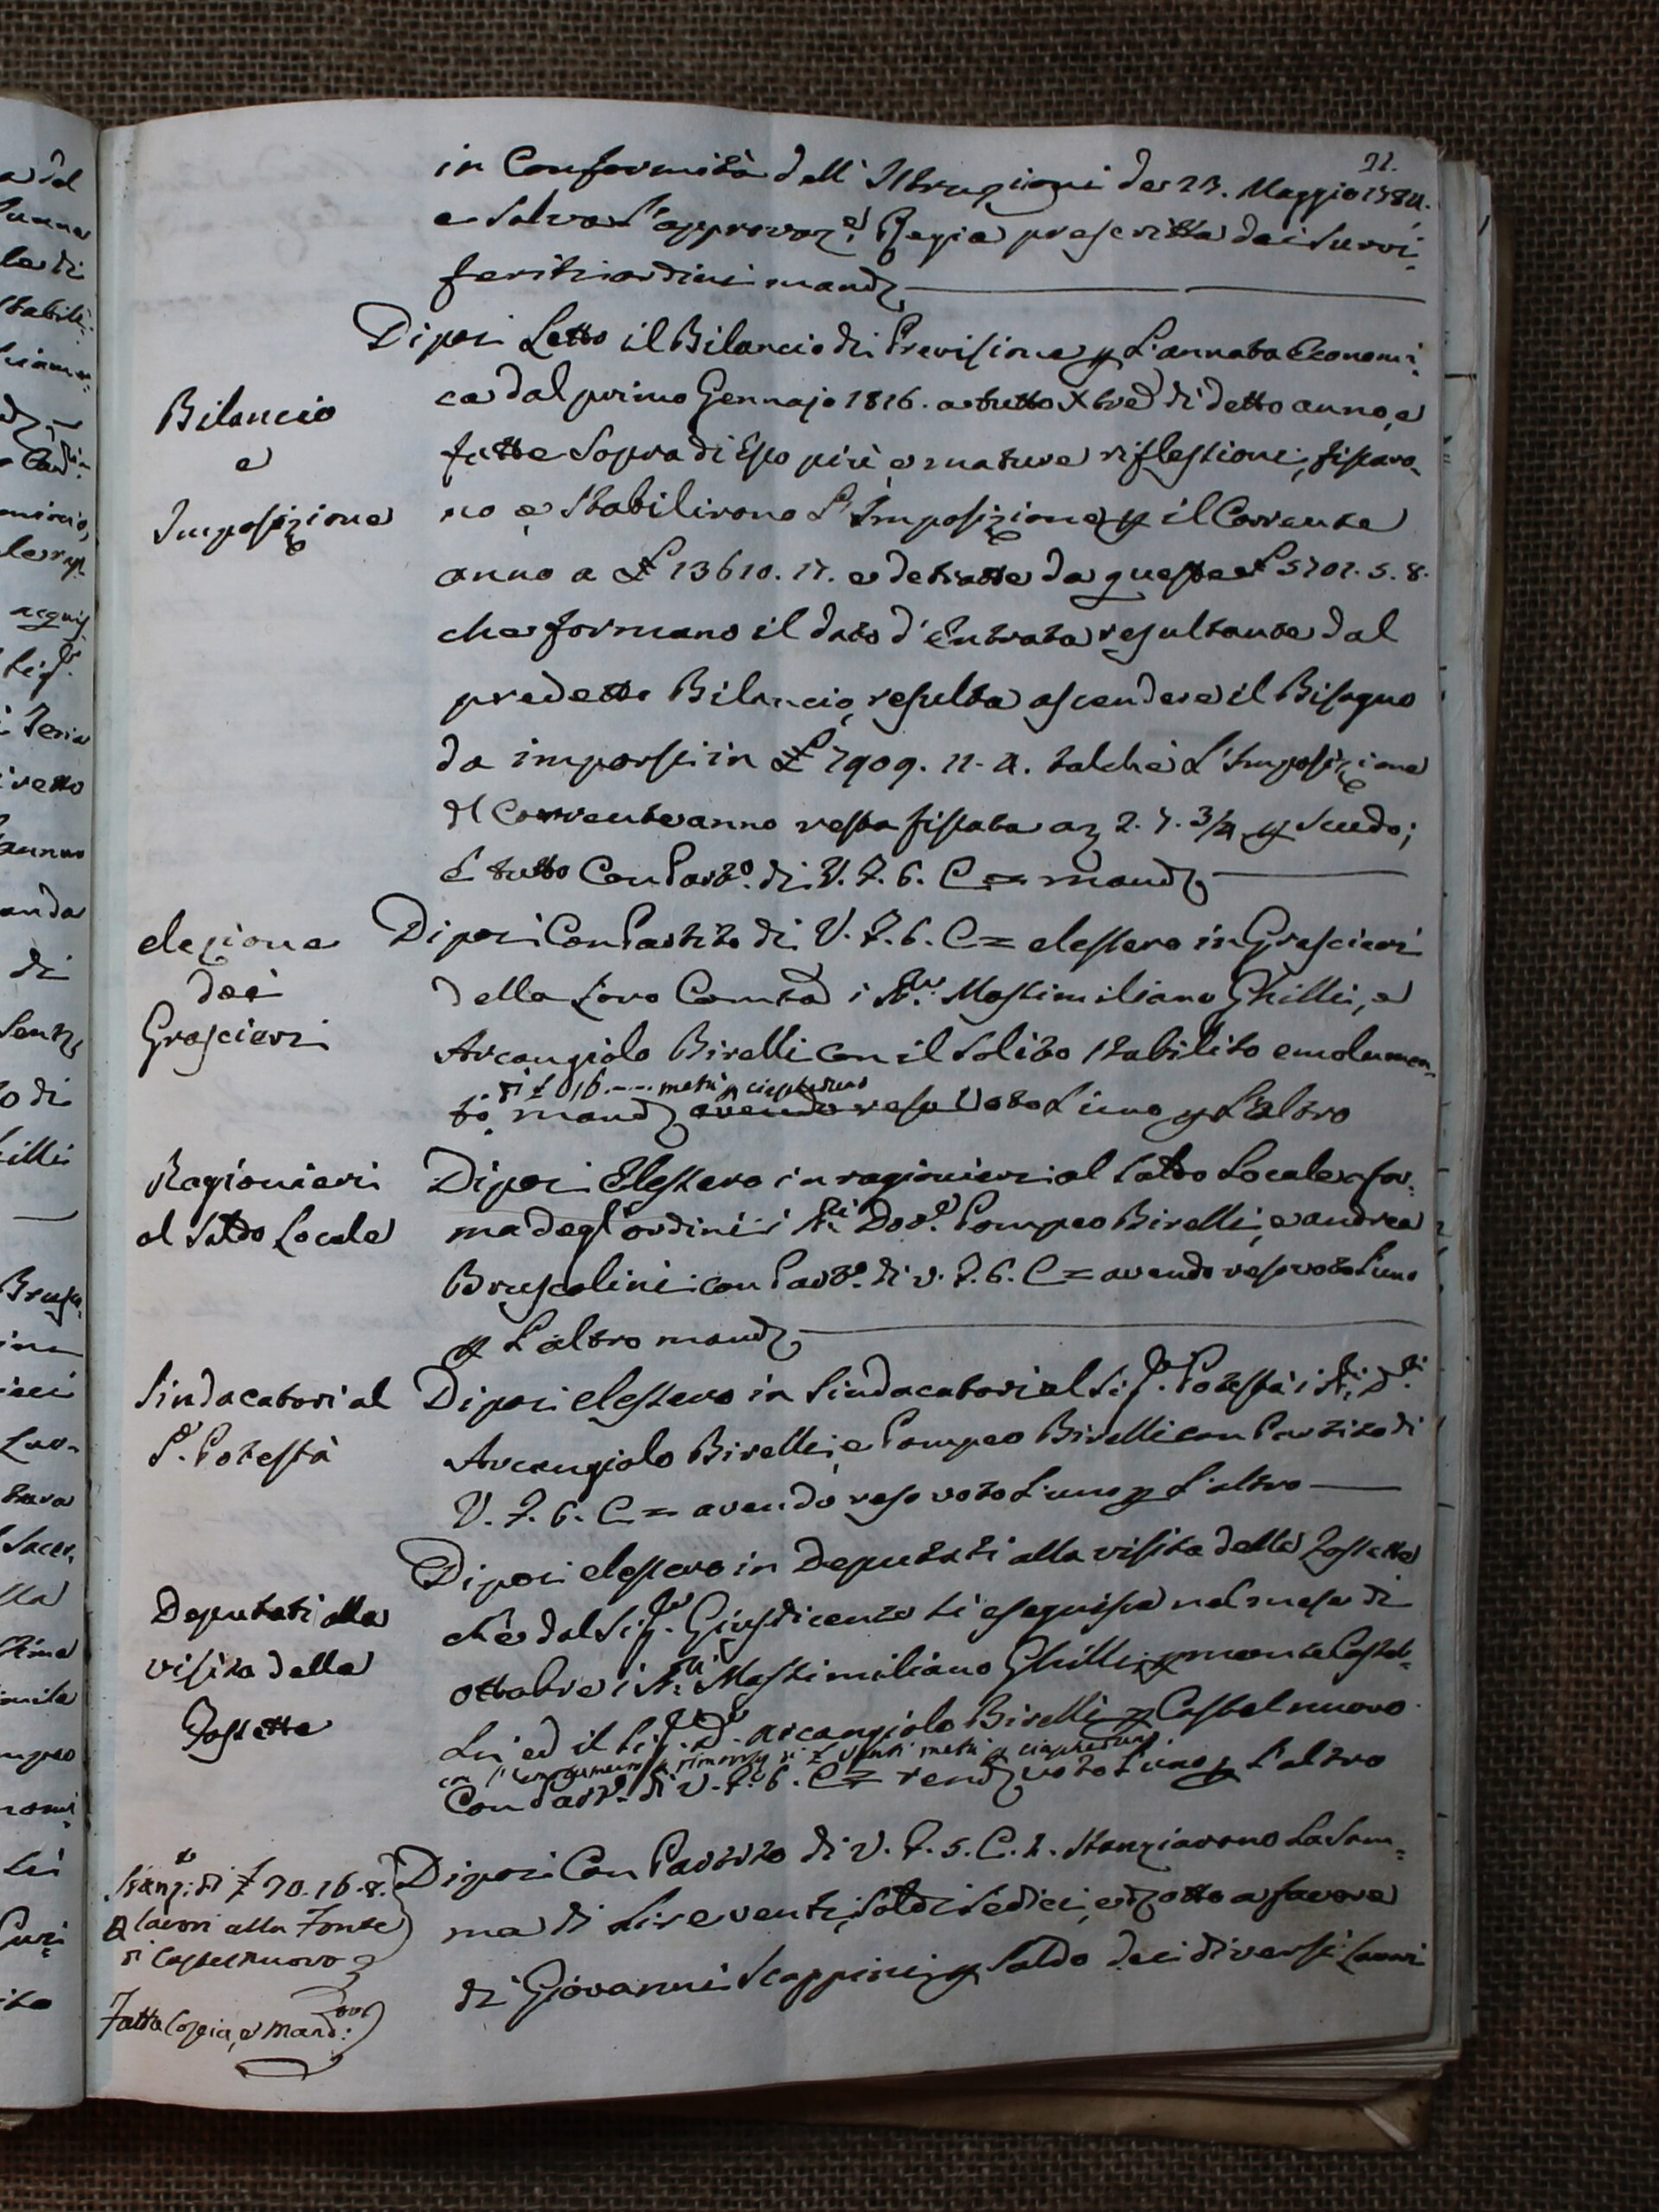 21.
in Conformità dell'Istruzioni de 23. Maggio 1784.
e Salva l'approvaz.e Regia prescritta dai Surri-
feriti ordini mand.
Bilancio
e
Imposizione
Dipoi Letto il Bilancio di Previsione p L'annata Economi-
ca dal primo Gennajo 1816. a tutto Xbre di detto anno, e
fatte Sopra di Esso più, e mature riflessioni, fissaro-
no e Stabilirono L'Imposizione p il Corrente
anno a £ 13610. 17. e detratte da queste £ 5701. 5. 8.
che formano il dato d'Entrata resultante dal
predetto Bilancio, resulta ascendere il Bisogno
da imporsi in £ 7909. 11. 4. talchè L'Imposizione
del Corrente anno resta fissata a 2. 7. 3/4 p Scudo;
E tutto Con Part.o di V. F. 6. C = mand.
elezione
dei
Grascieri
Dipoi Con Partito di V. F. 6. C = elessero in Grascieri
della Loro Comtà i SS.ri Massimiliano Ghilli, e
Arcangiolo Birelli con il Solito Stabilito emolumen-
di £ 016.---- metà p ciascheduno
to. mand. avendo reso Voto L'uno p L'altro
Ragionieri
al Saldo Locale
Dipoi Elessero in ragionieri al Saldo Locale a for-
ma degl'ordini i SS.ri Dot.e Pompeo Birelli, e andrea
Bruscolini con Part.o di V. F. 6. C = avendo reso voto L'uno
p L'altro mand.
Sindacatori al
S.r Potestà
Dipoi elessero in Sindacatori al Sig.r Potestà i SS.ri D.ri
Arcangiolo Birelli, e Pompeo Birelli con Partito di
V. F. 6. C = avendo reso voto L'uno p L'altro
Deputati alla
visita delle
Fossette
Dipoi elessero in Deputati alla visita delle Fossette
che dal Sig.r Giusdicente si eseguisce nel mese di
ottobre i SS.ri Massimiliano Ghilli p monte Castel-
Li, ed il Sig.r D.r Arcangiolo Birelli p Castelnuovo
con di £ Venti metà p ciascheduno
Con Part.o di V. F. 6. C = rend. voto L'uno p L'altro
Stanz.to di £ 20. 16. 8.
p lavori alla Fonte
di Castelnuovo
Fatta Copia, e Mand:
Dipoi Con Partito di V. F. 5. C. 1. Stanziarono La Som-
ma di Lire venti, Soldi Sedici, e d. otto a favore
di Giovanni Scappini p Saldo dei diversi Lavori